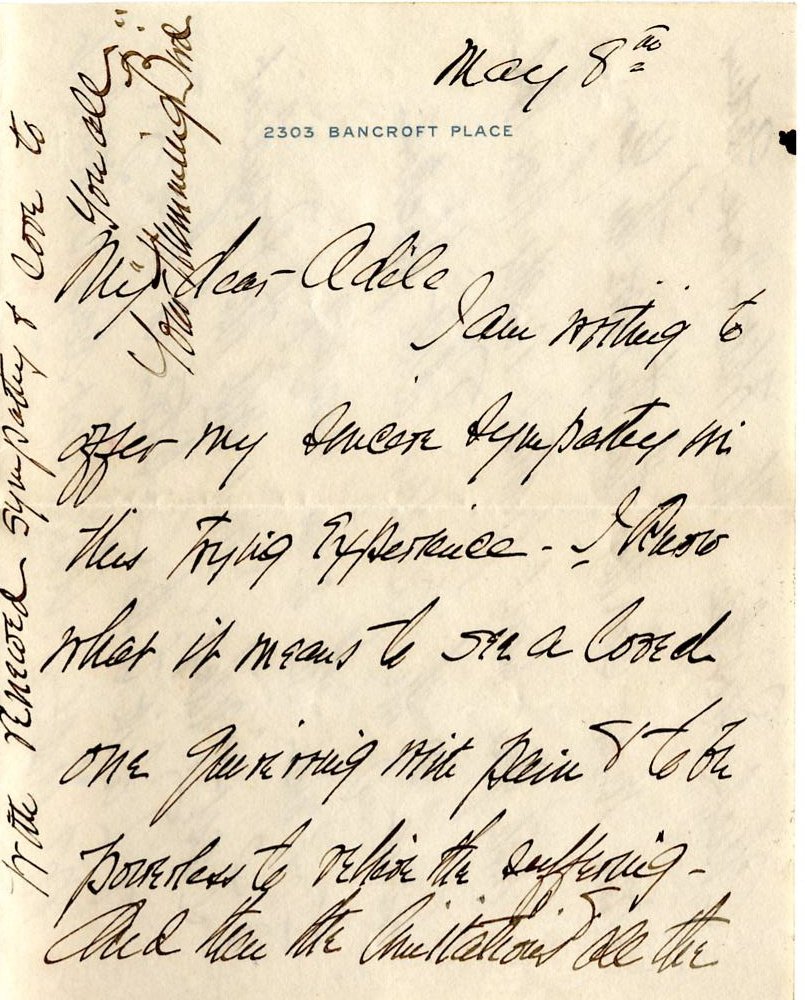 May 8th
2303 BANCROFT PLACE
My dear Adele
I am writing to
offer my sincere sympathy in
this trying Experience - I know
what it means to see a loved
one quivering with pain & to be
powerless to relieve the suffering -
And then the limitations all the
with renewed sympathy & love to
You all
Your "Humming Bird"